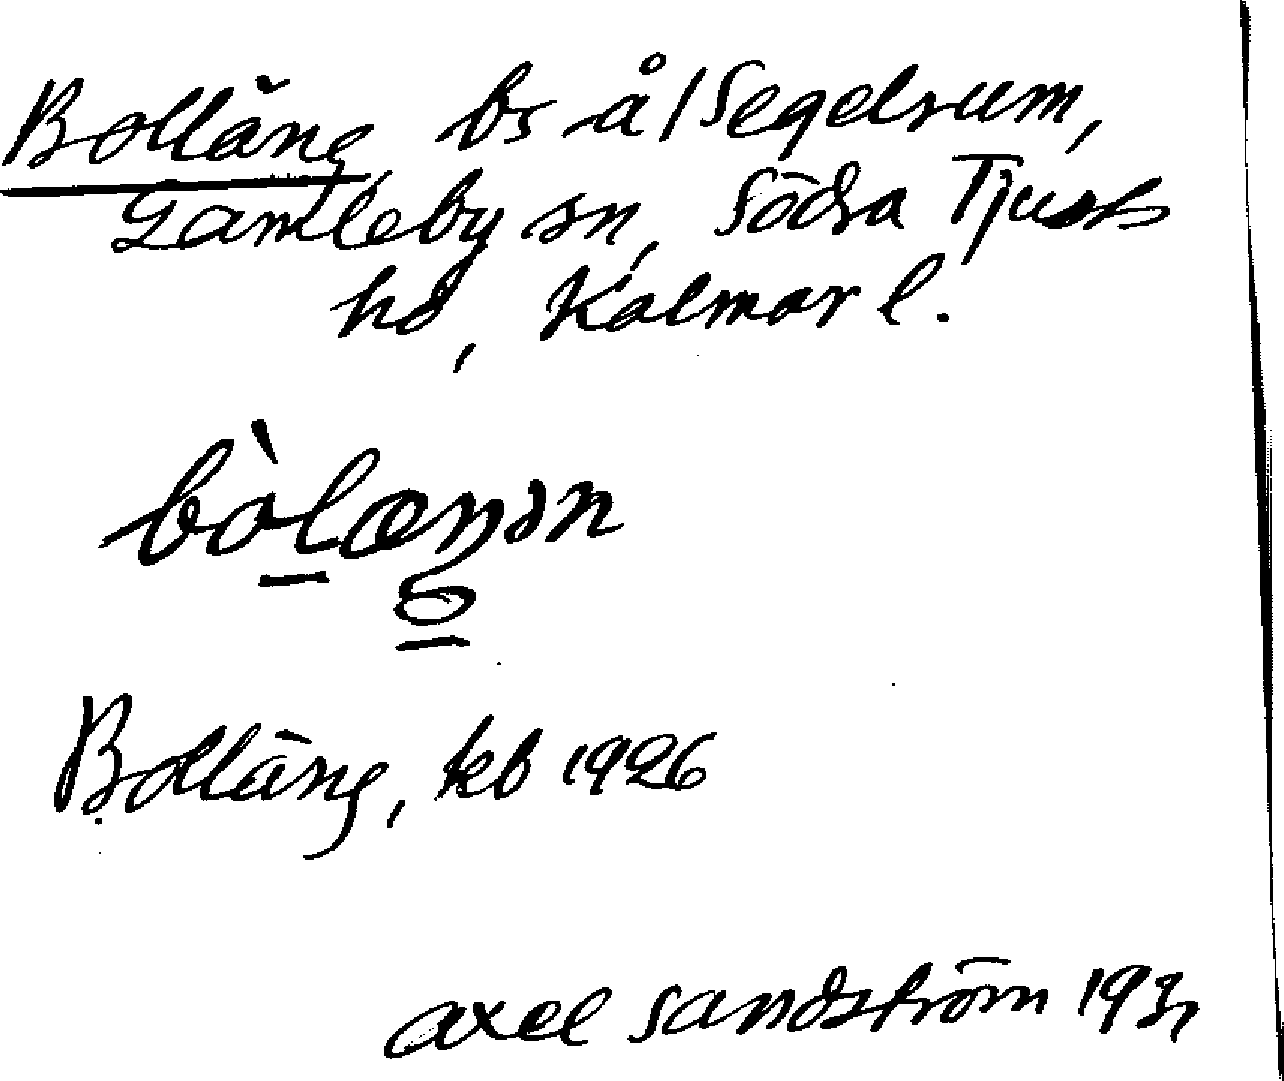 Bolläng, bs å/Segelrum,
Gamleby sn, Södra Tjusts
hd, Kalmar l.
bòlæŋın
Bolläng, kb 1926
Axel Sandström